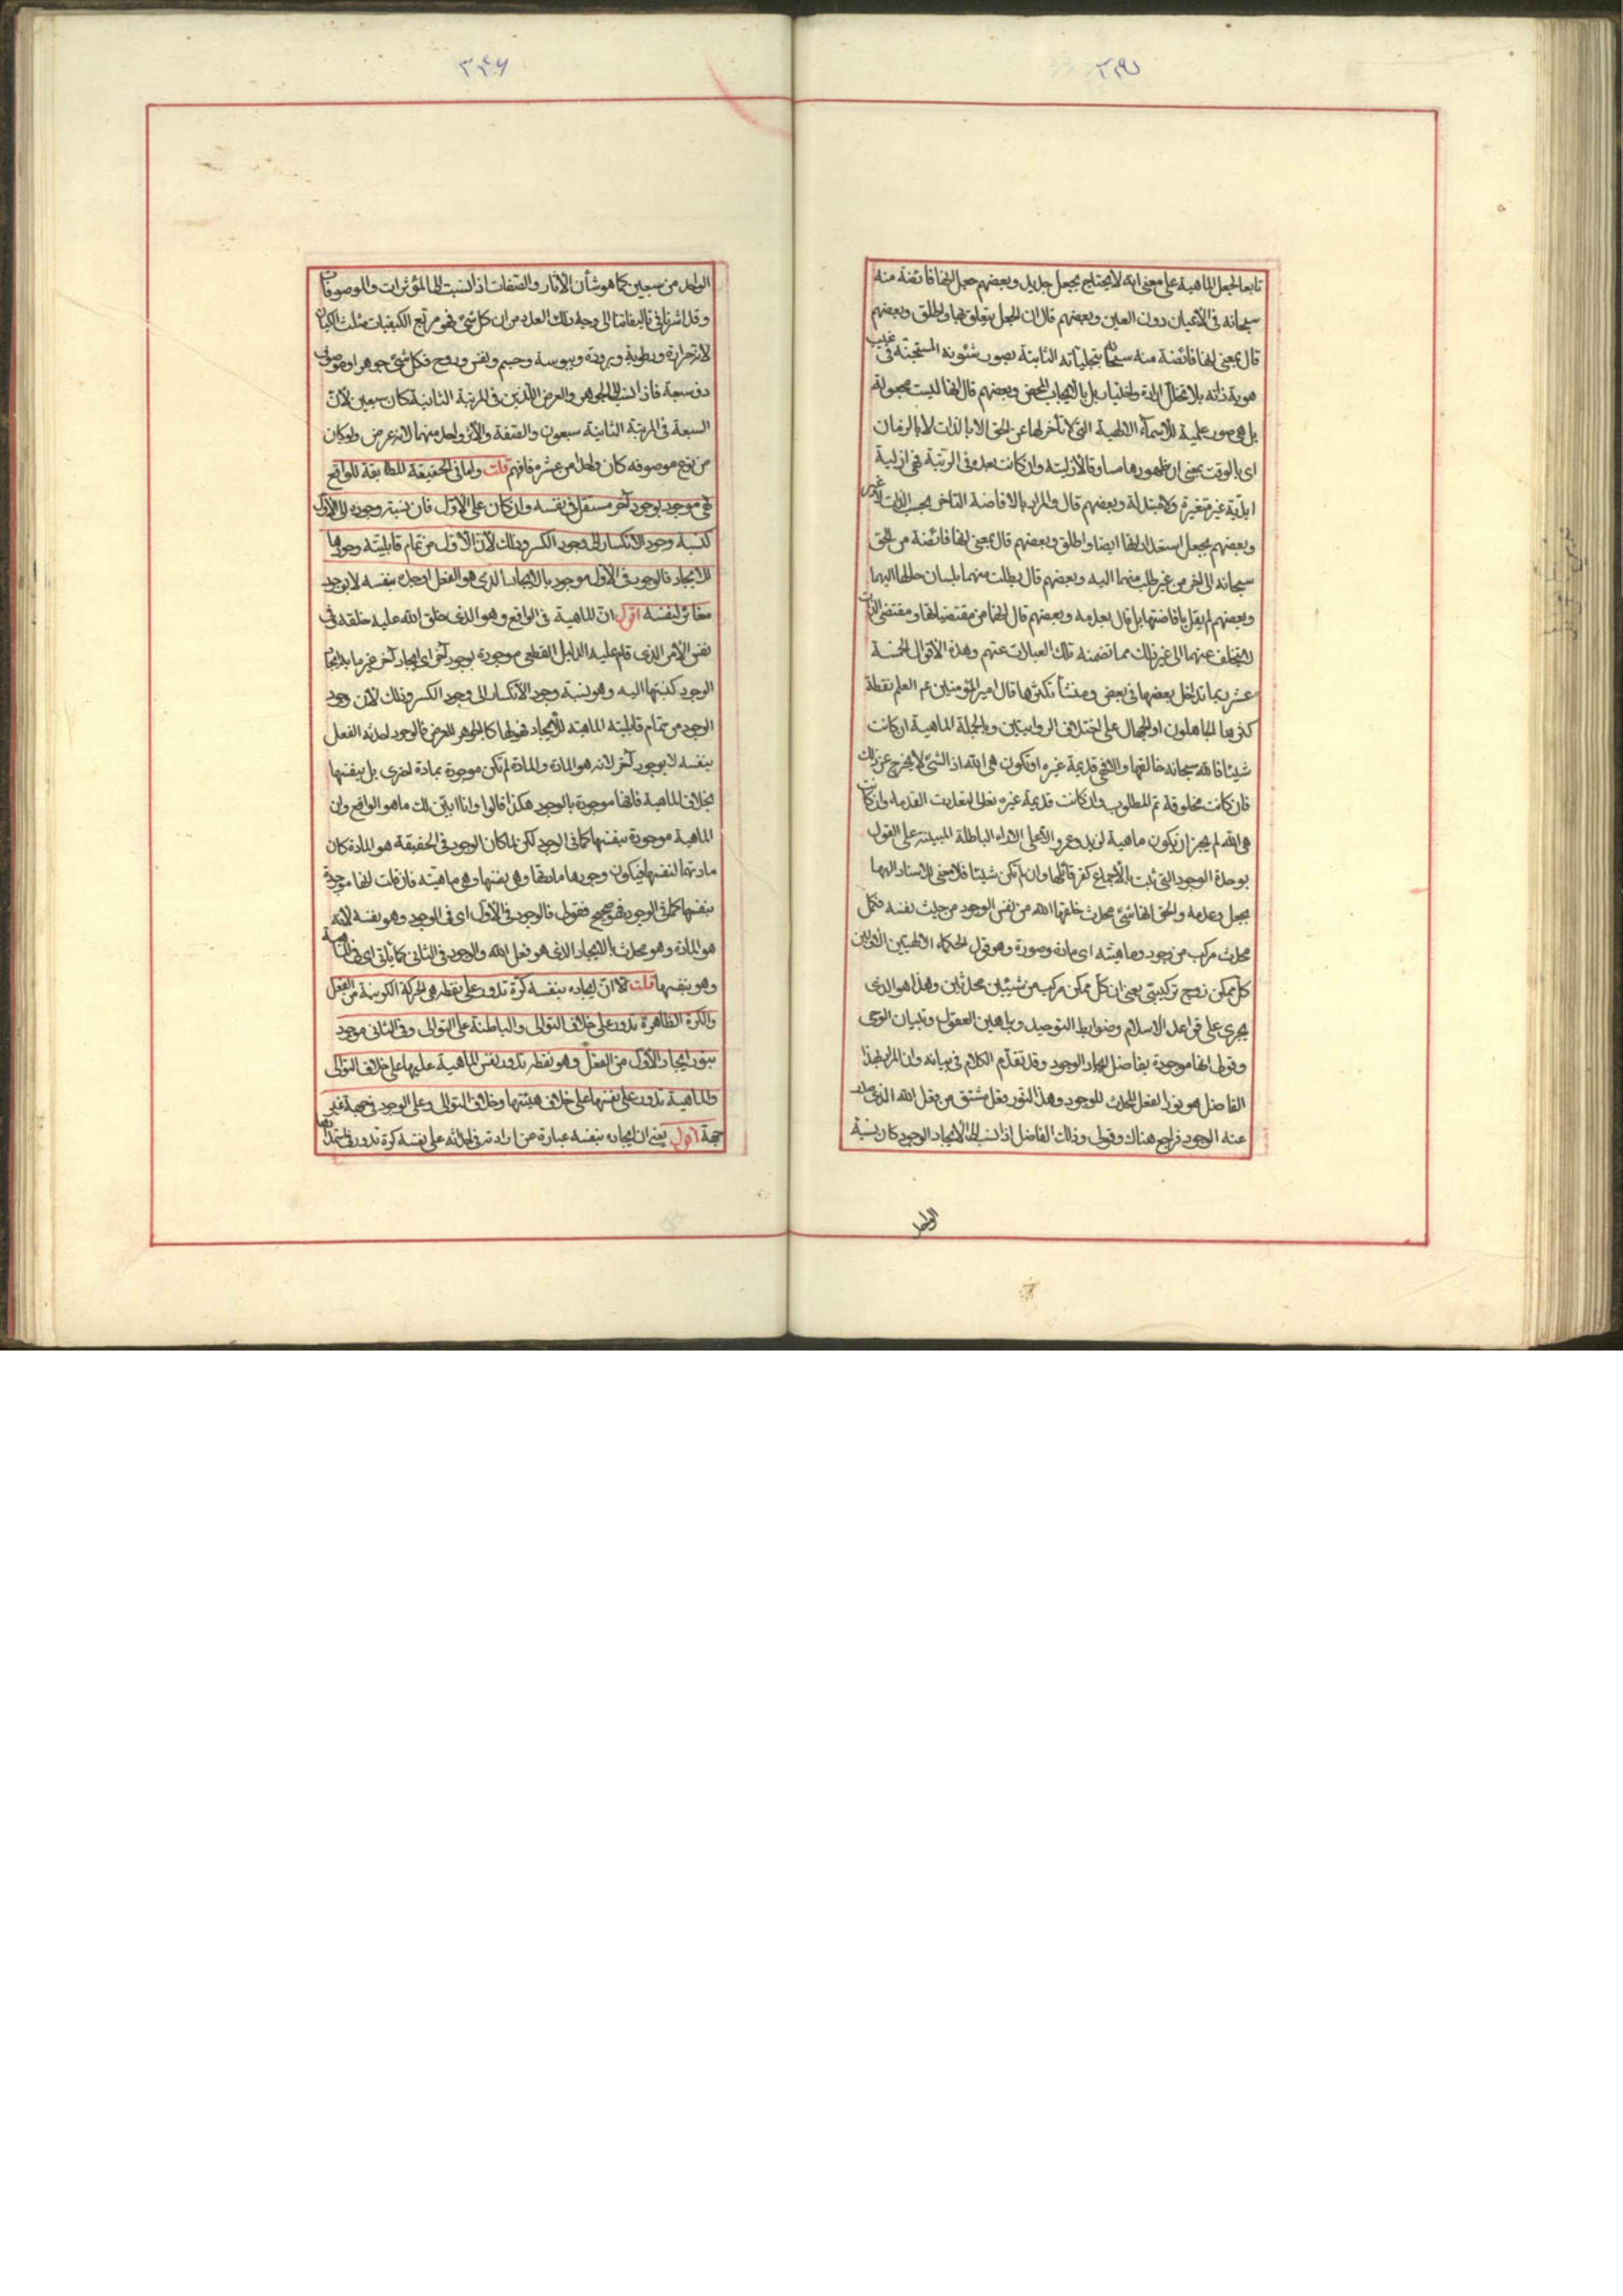 تابعا لجعل الماهية على معنى انه لا يحتاج بجعل جديد وبعضهم جعل انها فائضة منه
سبحانه فى الاعيان دون العين وبعضهم قال ان الجعل يتعلق بها واطلق وبعضهم
قال بمعنى انها فائضة منه سبحانه بتجلياته الذاتية بصور شئونه المستجنة فى غيب
هوية ذاته بلا تخلل ارادة واختيار بل بالايجاب المحض وبعضهم قال انها ليست مجعولة
بل هى صور علمية للاسماء الالهية التى لا تأخر لها عن الحق الا بالذات لا بالزمان
اى بالوقت بمعنى ان ظهورها مساوقا لازليته وان كانت بعده فى الرتبة فهى ازلية
ابدية غير متغيرة ولا متبدلة وبعضهم قال والمراد بالافاضة التاخر بحسب الذات لا غير
وبعضهم بجعل استعداداتها ايضا واطلق وبعضهم قال بمعنى انها فائضة من الحق
سبحانه الى غير من غير طلب منهما اليه وبعضهم قال بطلب منهما بلسان حالها اليهما
وبعضهم لم يقل بافاضتها بل قال بعدمه وبعضهم قال انها من مقتضياتها ومقتضى الذات
لا يتخلف عنهما الى غير ذلك مما تضمنه تلك العبارات عنهم وهذه الاقوال الخمسة
عشر ربما تداخل بعضها فى بعض ومنشأ تكثرها قال امير المؤمنين عم العلم نقطة
كثرها الجاهلون او الجهال على اختلاف الروايتين وبالجملة الماهية ان كانت
شيئا فالله سبحانه خالقها والا فهى قديمة غيره او تكون هى الله اذ الشئ لا يخرج عن ذلك
فان كانت مخلوقة تم المطلوب وان كانت قديمة غيره تعالى تعددت القدماء وان كانت
هى الله لم يجز ان يكون ماهية لزيد وعمرو الا على الاراء الباطلة المبينة على القول
بوحدة الوجود التى ثبت بالاجماع كفر قائلها وان لم تكن شيئا فلا معنى للاسناد اليها
بجعل وعدمه والحق انها شئ محدث خلقها الله من نفس الوجود من حيث نفسه فكل
محدث مركب من وجود وماهيته اى مادة وصورة وهو قول الحكماء الالهيين الاولين
كل ممكن زوج تركيبى يعنى ان كل ممكن مركب من شيئين محدثين وهذا هو الذى
يجرى على قواعد الاسلام وضوابط التوحيد وبراهين العقول وتبيان الوحى
وقولى انها موجودة بفاضل ايجاد الوجود وقد تقدم الكلام فى بيانه وان المراد بهذا
الفاضل هو نور الفعل المحدث للوجود وهذا النور فعل مشتق من فعل الله الذى صدر
عنه الوجود فراجع هناك وقولى وذلك الفاضل اذا نسب الى الايجاد الوجود كان نسبة
الواحد
الواحد من سبعين كما هو شأن الاثار والصفات اذا نسبت الى المؤثرات والموصوفات
وقد اشرنا فى تاليفاتنا الى وجه ذلك العدد من ان كل شئ فهو مربع الكيفيات مثلث الكيان
لانه حرارة ورطوبة وبرودة ويبوسة وجسم ونفس وروح فكل شئ جوهر او
ذو سبعة فاذا نسب الى الجوهر والعرض اللذين فى المرتبة الثانية كان سبعين لان
السبعة فى المرتبة الثانية سبعون والصفة والاثر واحد منهما لانه عرض ولو كان
من نوع موصوفه كان واحدا من عشرة فافهم قلت واما فى الحقيقة المطابقة للواقع
فهى موجود بوجود آخر مستقل فى نفسه وان كان على الاول فان نسبة وجوده الى الاول
كنسبة وجود الانكسار الى وجود الكسر وذلك لان الاول من تمام قابليته وجودها
للايجاد فالوجود فى الاول موجود بالايجاد الذى هو الفعل اوجده بنفسه لا بوجود
مغائر لنفسه اقول ان الماهية فى الواقع وهو الذى خلق الله عليه خلقه فى
نفس الامر الذى قام عليه الدليل القطعى موجودة بوجود آخر اى ايجاد آخر غير ما به ايجاد
الوجود كنسبتها اليه وهو نسبة وجود الانكسار الى وجود الكسر وذلك لان وجود
الوجود من تمام قابلية الماهية للايجاد فهو لها كالجوهر للعرض فالوجود احدثه الفعل
بنفسه لا بوجود آخر لانه هو المادة والمادة لم تكن موجودة بمادة اخرى بل بنفسها
بخلاف الماهية فانها موجودة بالوجود هكذا قالوا وانا ابين لك ما هو الواقع وان
الماهية موجودة بنفسها كما فى الوجود لكن لما كان الوجود فى الحقيقة هو المادة كان
مادتها لنفسها فيكون وجودها مادتها وهى نفسها وهى ماهيته فان قلت انها موجودة
بنفسها كما فى الوجود فهو صحيح فقولى فالوجود فى الاول اى فى الوجود وهو نفسه لانه
هو المادة وهو محدث بالايجاد الذى هو فعل الله والوجود فى الثانى كما يأتى اى فى الماهية
وهو بنفسها قلت الا ان ايجاده بنفسه كرة تدور على نقطة هى الحركة الكونية من الفعل
والكرة الظاهرة تدور على خلاف التوالى والباطنة على التوالى وفى الثانى موجود
بنور ايجاد الاول من الفعل وهو نقطه تدور نفس الماهية عليها على خلاف التوالى
والماهية تدور على نفسها على خلاف هيئتها وخلاف التوالى وعلى الوجود فى جهة غير
جهة اقول يعنى ان ايجاده بنفسه عبارة عن ارادته فى احداثه على نفسه كرة تدور فى استمدادها